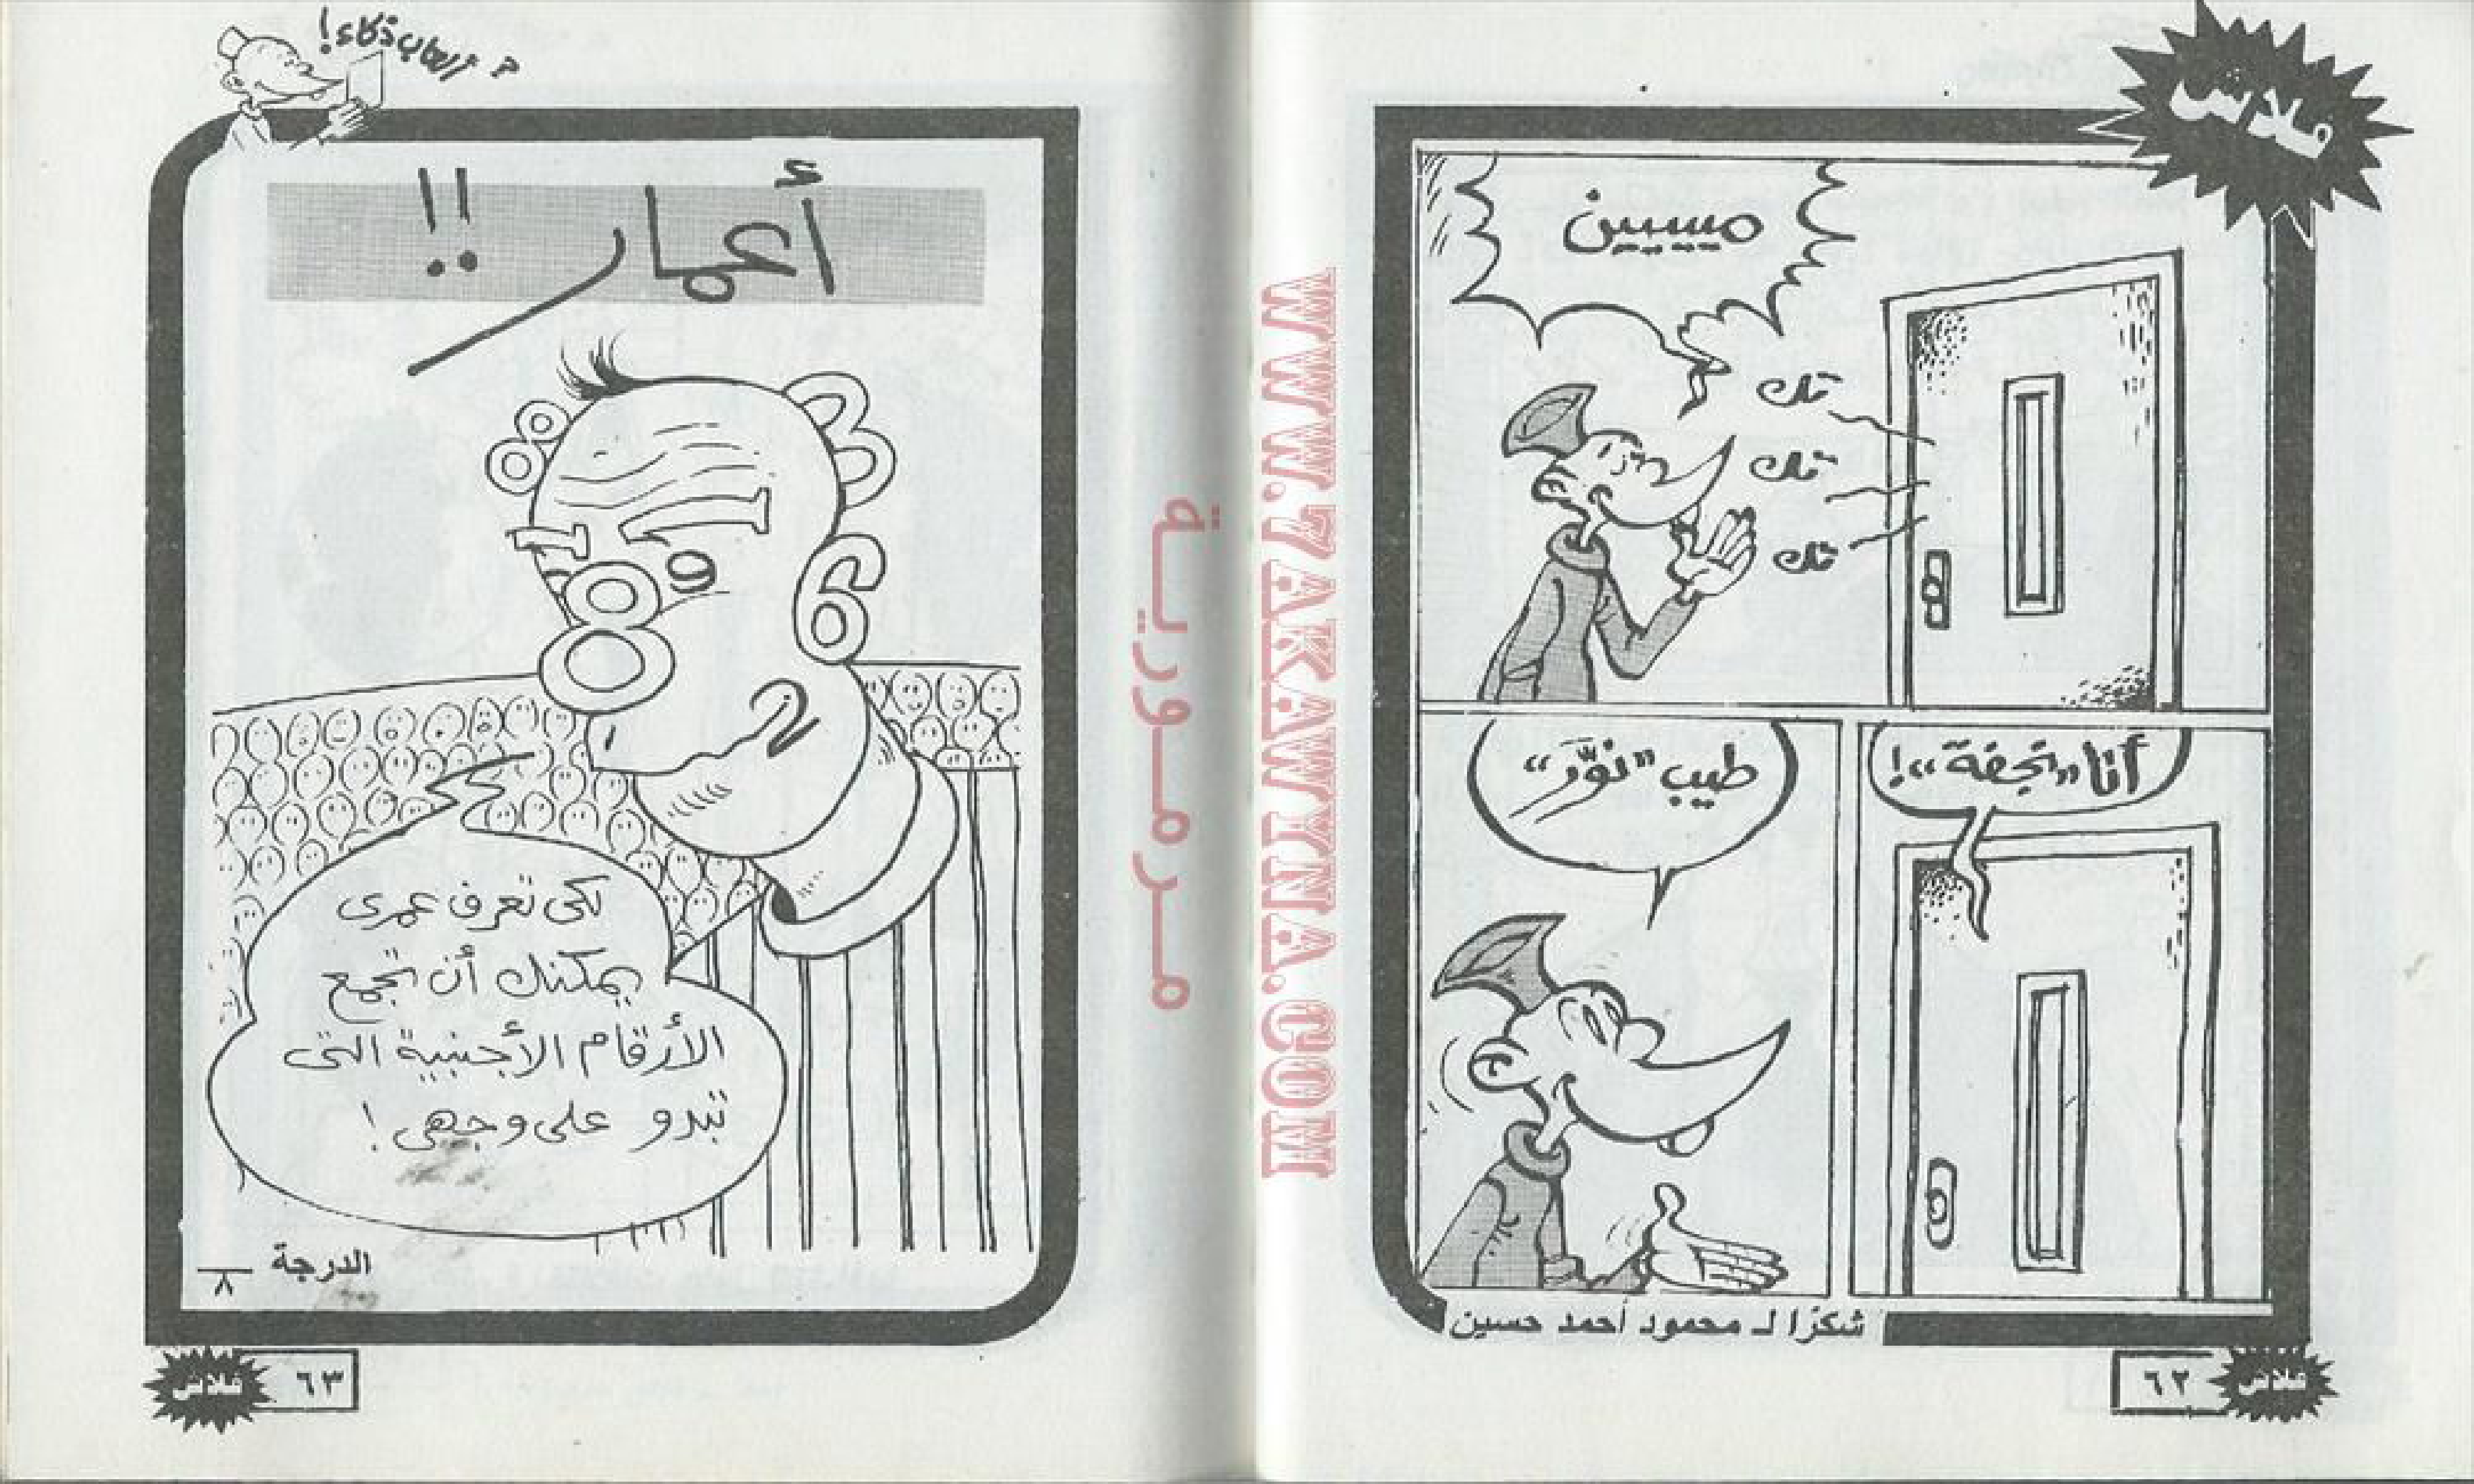 فلاش
مسيين
تك
تك
تك
أنا "تحفة"!
طيب "نوَّر"
شكرًا لـ محمود أحمد حسين
٦٢
فلاش
WWW.7AKAWINA.COM
مـرمـوريـة
ألعاب ذكاء!
أعمار!!
8
3
1
1
8
9
6
2
لكى تعرف عمرى
يمكنك أن تجمع
الأرقام الأجنبية التى
تبدو على وجهى!
الدرجة
٨
٦٣
فلاش